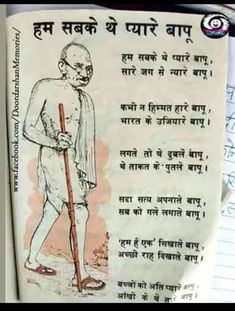 हम सबके थे प्यारे बापू
हम सबके थे प्यारे बापू,
सारे जग से न्यारे बापू।
कभी न हिम्मत हारे बापू,
भारत के उजियारे बापू।
लगते तो थे दुबले बापू,
थे ताकत के पुतले बापू।
सदा सत्य अपनाते बापू,
सब को गले लगाते बापू।
'हम हैं एक' सिखाते बापू,
अच्छी राह दिखाते बापू।
बच्चों को अति प्यारे बापू
आंखों के थे तारे बापू।
www.facebook.com/DoordarshanMemories/